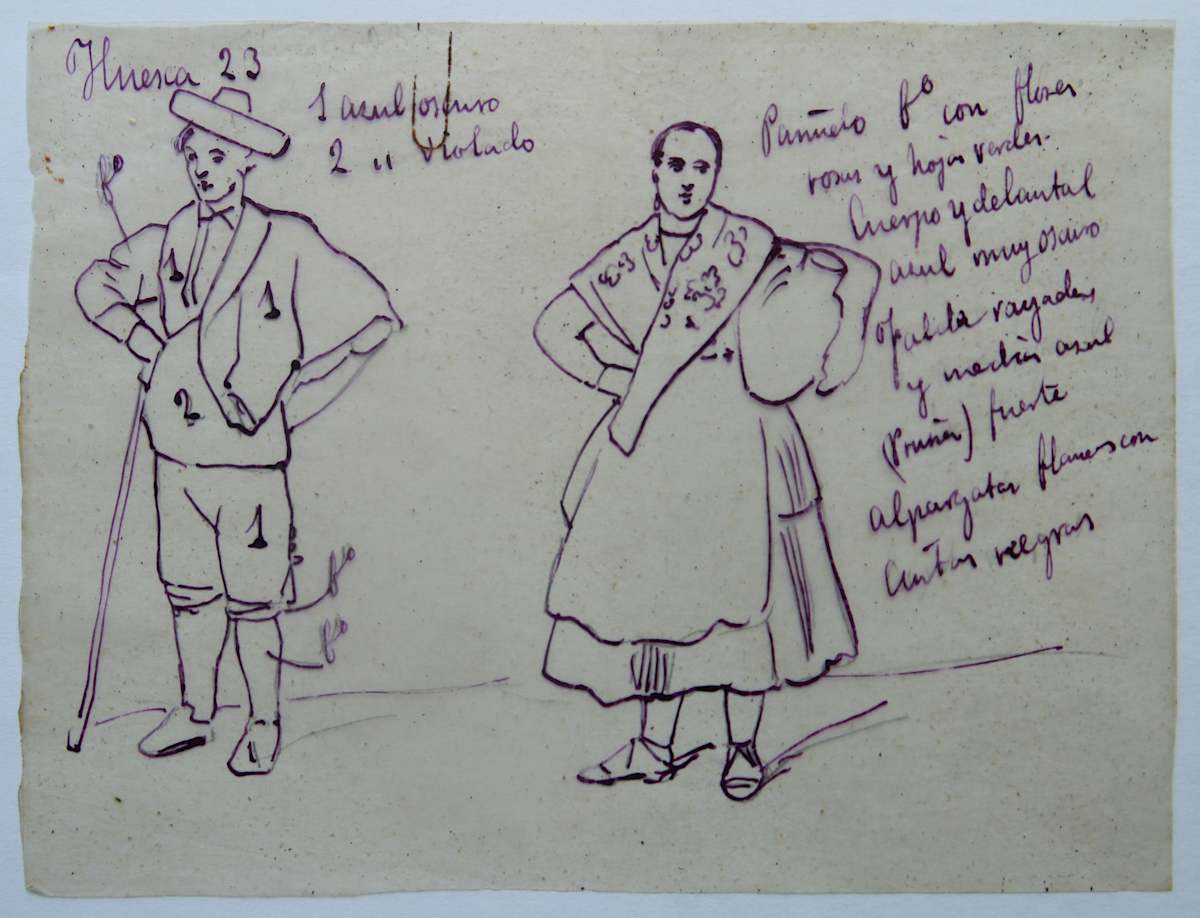 Huesca 23
1 azul oscuro
2 " violado
bº
1
1
2
1
bº
bº
Pañuelo bº con flores
rosas y hojas verdes.
Cuerpo y delantal
azul muy oscuro
falda rayada
y medias azul
(Prusia) fuerte
alpargatas blancas con
cintas negras